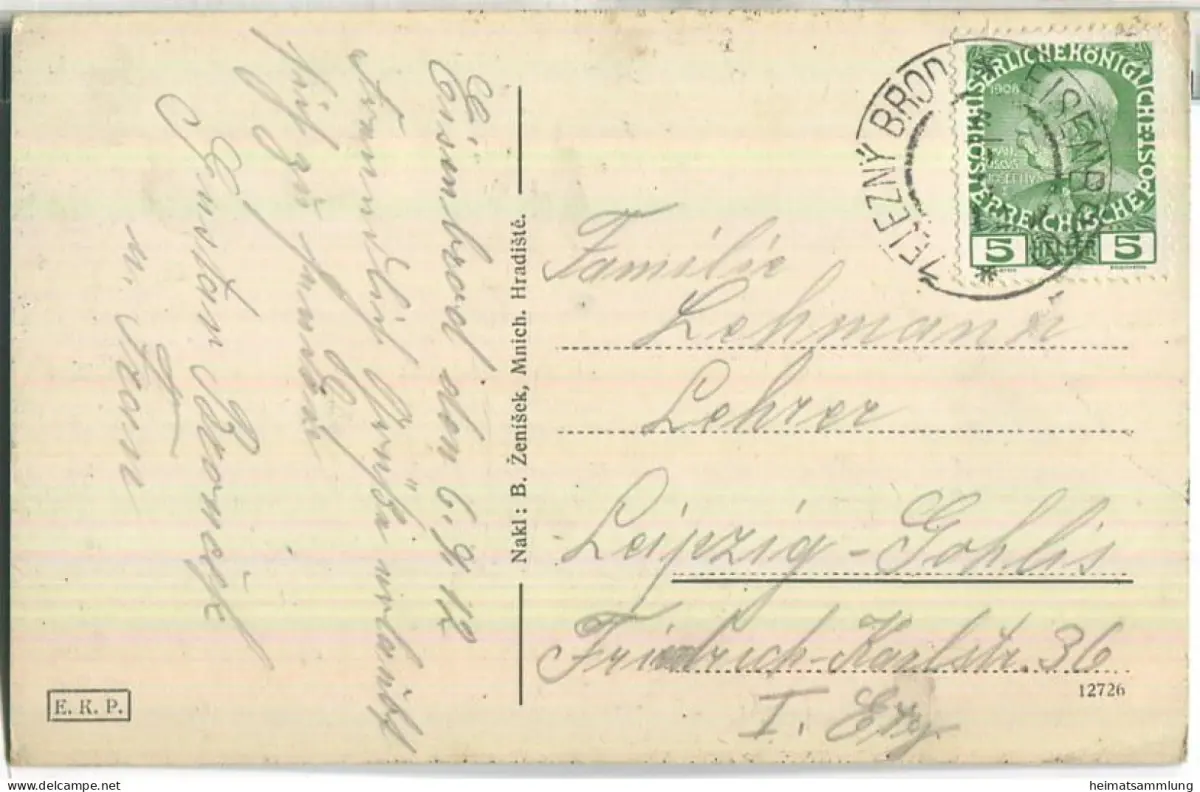 Eisenbrod den 6. 9. 12
Freundlich Grüße
sich zu senden
Gustav
u. Frau
Nakl: B. Ženíšek, Mnich. Hradiště.
ŽELEZNÝ BROD
EISENBROD
KAISERLICHE KÖNIGLICHE ÖSTERREICHISCHE POST
1908
5 HELLER 5
Familie
Lehmann
Lehrer
Leipzig-Gohlis
Friedrich-Karlstr. 36
I. Etg.
12726
E. K. P.
heimatsammlung